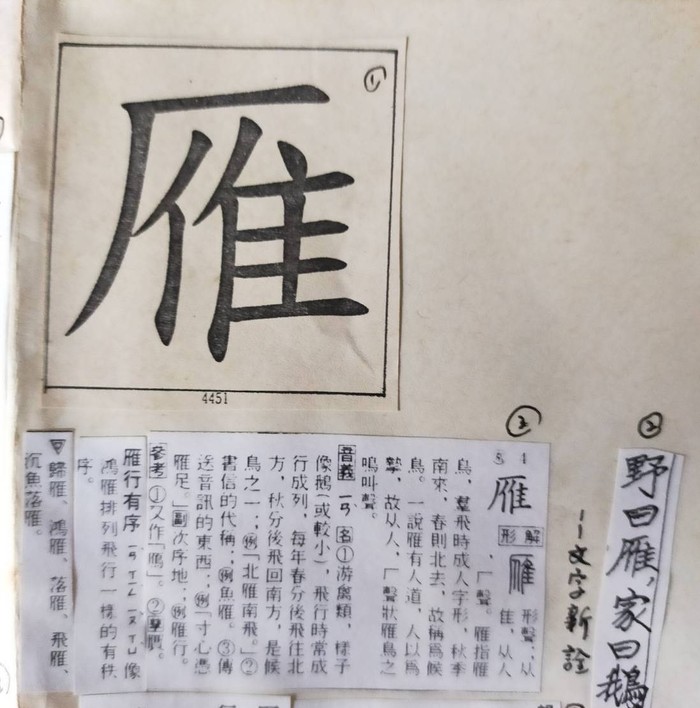 ①
雁
4451
②
野曰雁,家曰鵝
——文字新詮
③
雁 解形 雁 形聲;从
隹,从人
,厂聲。雁指雁
鳥,羣飛時成人字形,秋季
南來,春則北去,故稱爲候
鳥。一說雁有人道,人以爲
摯,故从人,厂聲狀雁鳥之
鳴叫聲。
音義 ㄧㄢˋ 名①游禽類,樣子
像鵝(或較小),飛行時常成
行成列,每年春分後飛往北
方,秋分後飛回南方,是候
鳥之一;例「北雁南飛。」②
書信的代稱;例魚雁。③傳
送音訊的東西;例「寸心憑
雁足。」副次序地;例雁行。
參考 ①又作「鴈」。
雁行有序 像
鴻雁排列飛行一樣的有秩
序。
▽歸雁、鴻雁、落雁、飛雁、
沉魚落雁。